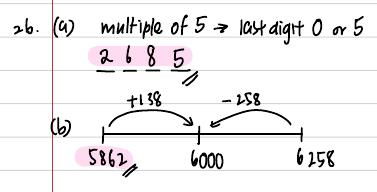 26. (a) multiple of 5 → last digit 0 or 5
2 6 8 5
+138 -258
(b)
5862 6000 6258